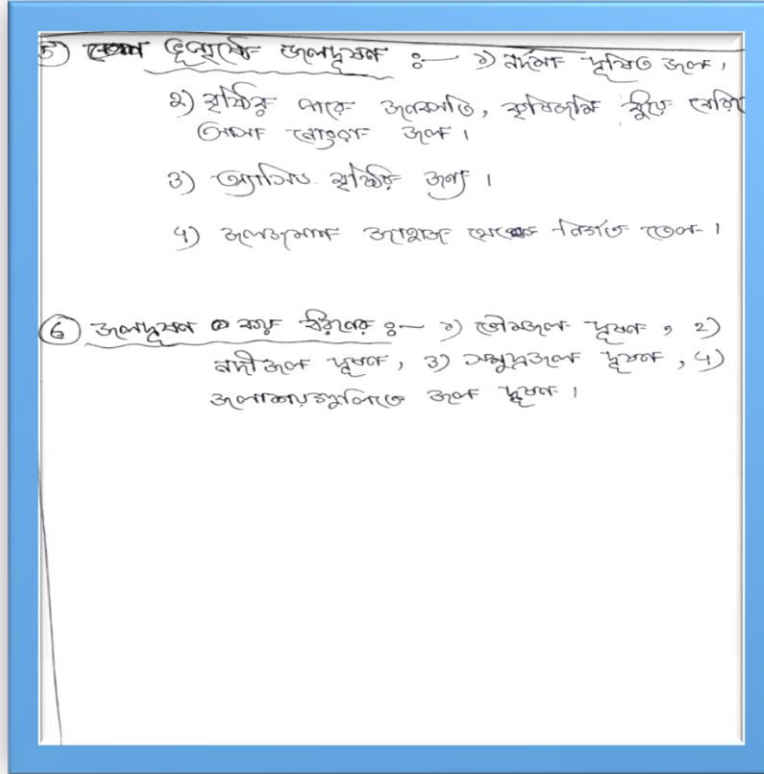 5) ভূপৃষ্ঠে জলদূষণ :— ১) নর্দমা দূষিত জল,
২) বৃষ্টির পরে জনবসতি, কৃষিজমি ধুয়ে বেরিয়ে
আসা নোংরা জল।
৩) অ্যাসিড বৃষ্টির জন্য।
৪) জলজমান জাহাজ থেকে নির্গত তেল।
6) জলদূষণ কয় ধরণের :— ১) ভৌমজল দূষণ, ২)
নদীজল দূষণ, ৩) সমুদ্রজল দূষণ, ৪)
জলাশয়গুলিতে জল দূষণ।